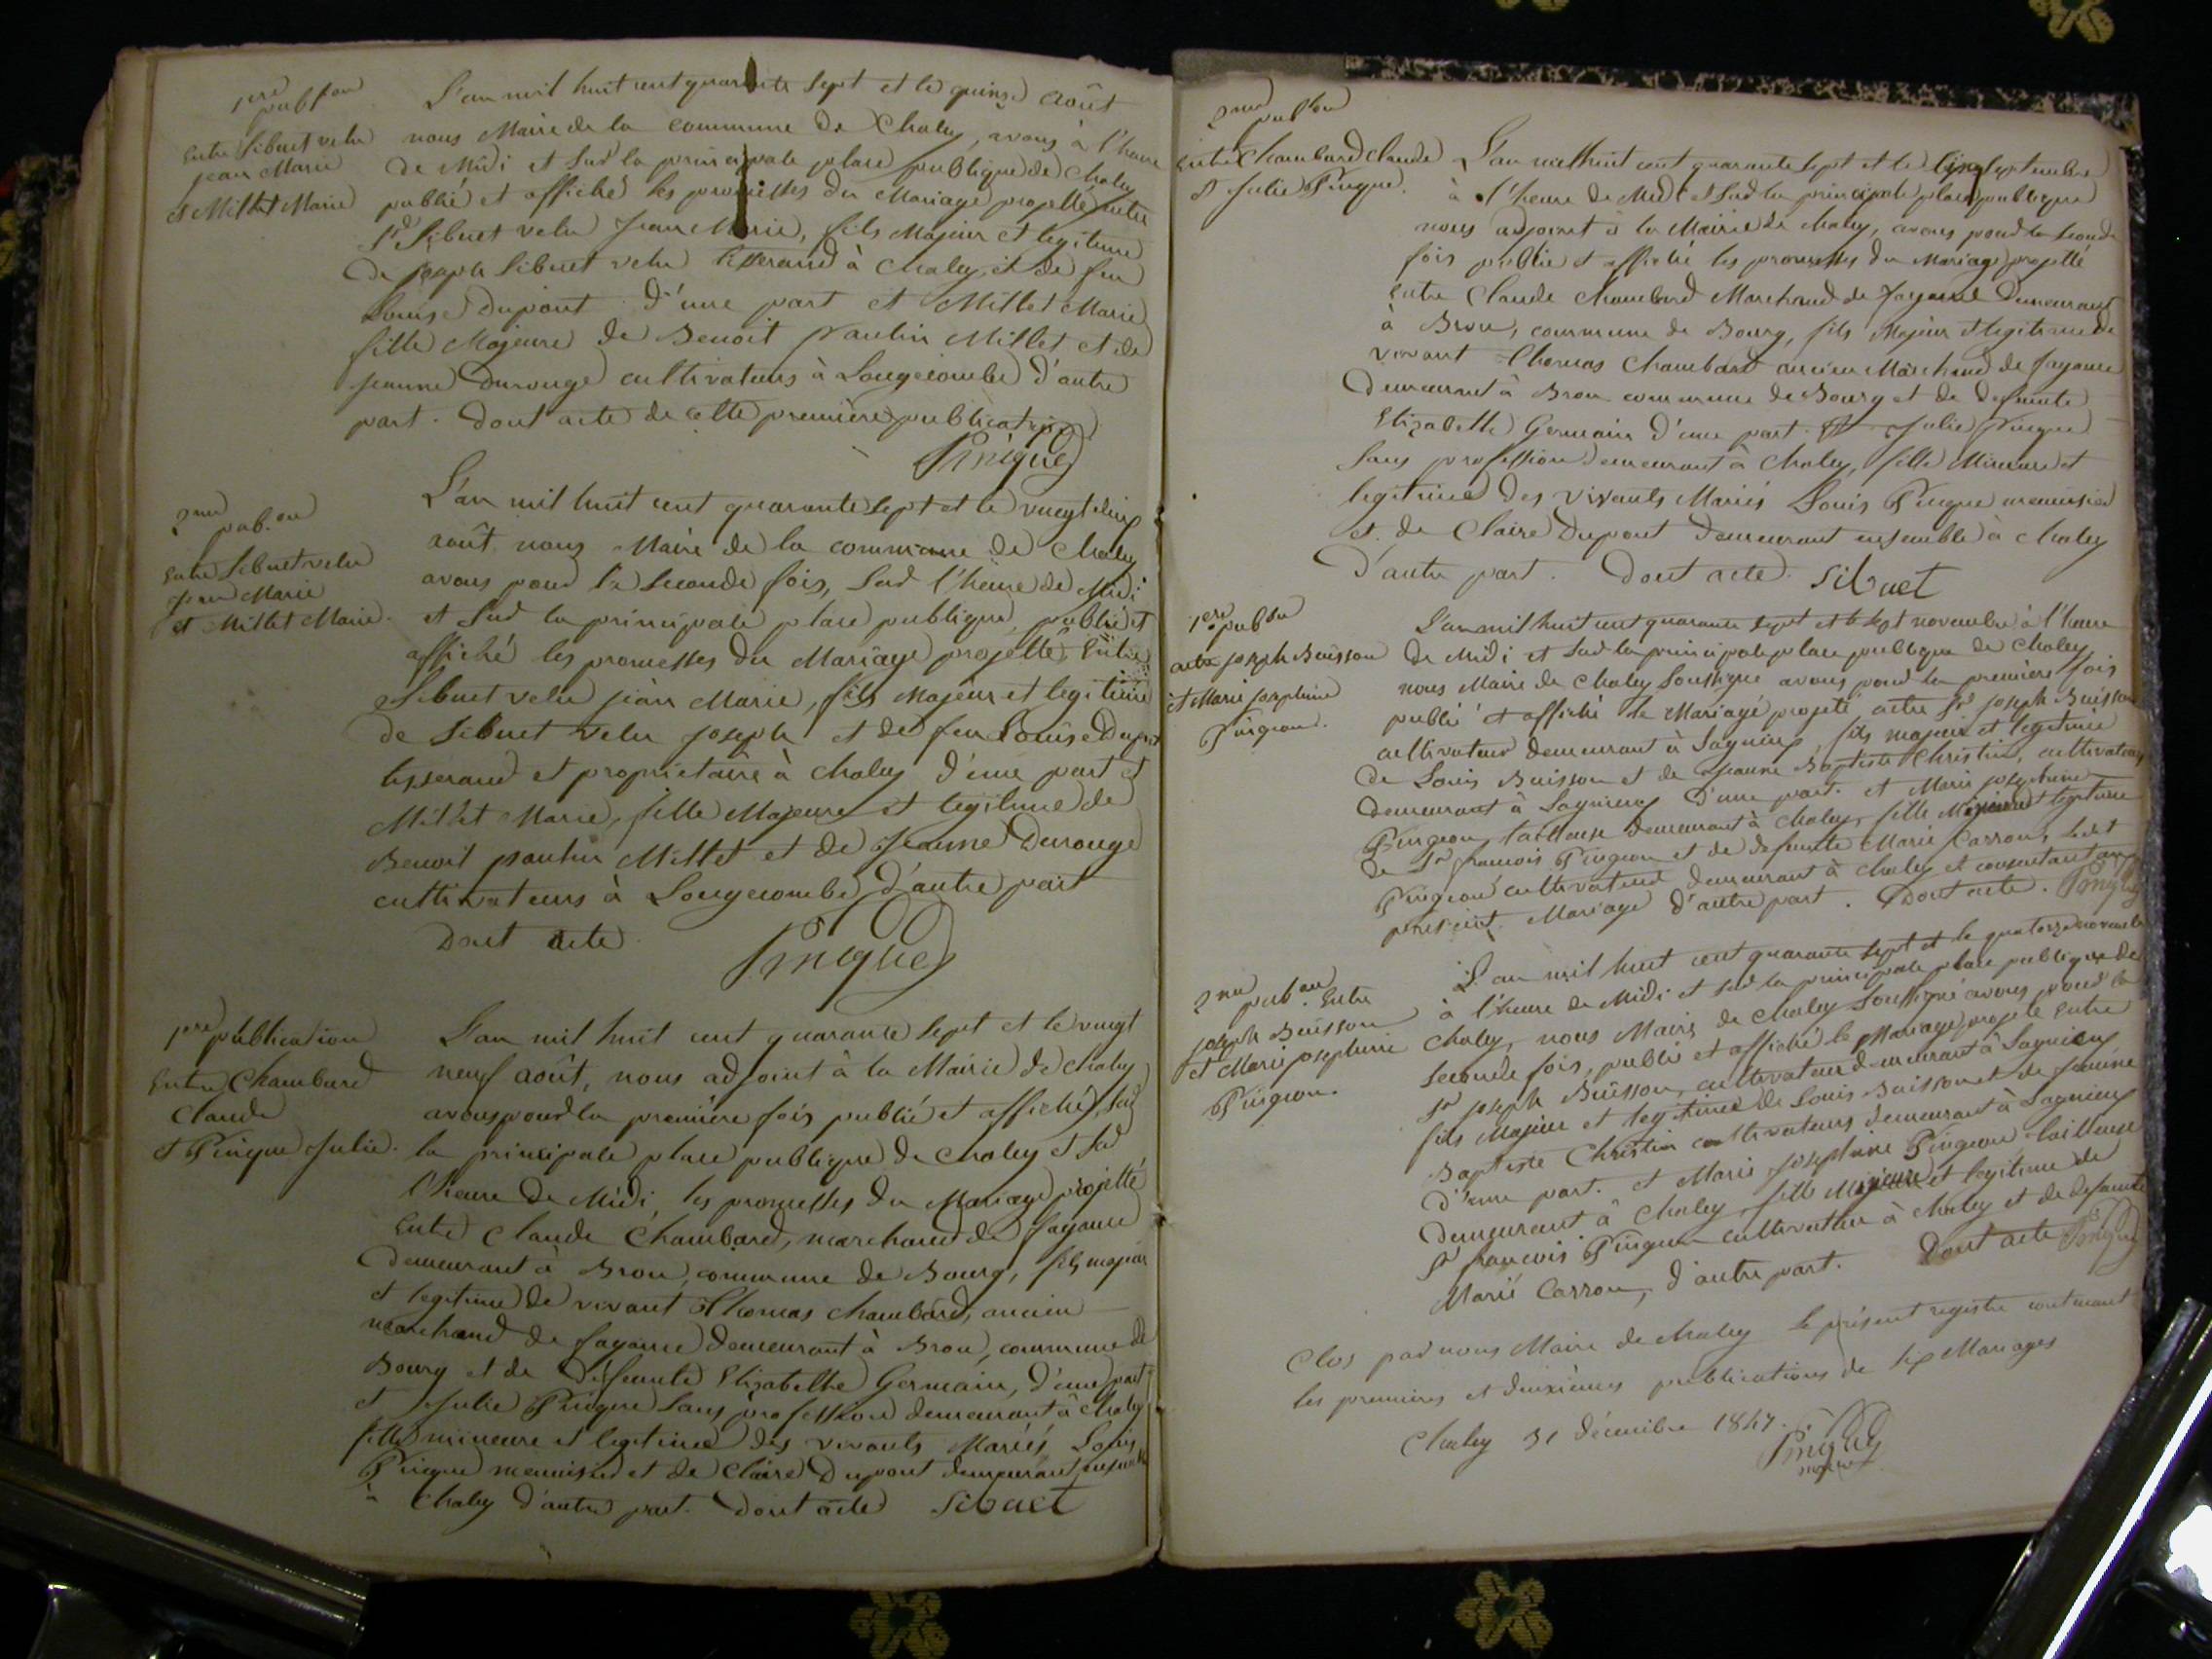 1ere
pub^on
Entre Sibuet velu
jean Marie
et Millet Marie
L'an mil huit cent quarante sept et le quinze août
nous Maire de la commune de Chaley, avons à l'heure
de Midi et sur la principale place publique de Chaley
publié et affiché les promesses du Mariage projetté entre
Sr Sibuet velu Jean Marie, fils Majeur et legitime
de joseph Sibuet velu tisserand à Chaley, et de feu
Louise Dupont d'une part et Millet Marie
fille Majeure de Benoit Paulin Millet et de
jeanne Durouge cultivateurs à Longecombe d'autre
part. Dont acte de cette première publication
Pingue
2me
pub.on
Entre Sibuet velu
Jean Marie
et Millet Marie.
L'an mil huit cent quarante sept et le vingt deux
août nous Maire de la commune de Chaley
avons pour la seconde fois, sur l'heure de Midi
et sur la principale place publique, publié et
affiché les promesses du Mariage projetté, Entre
Sibuet velu jean Marie, fils Majeur et legitime
de Sibuet velu joseph et de feu Louise Dupont
tisserand et propriétaire à Chaley d'une part et
Millet Marie, fille Majeure et legitime de
Benoit paulin Millet et de Jeanne Durouge
cultivateurs à Longecombe, d'autre part
Dont acte
Pingue
1ere publication
Entre Chambard
Claude
et Pingue Julie.
L'an mil huit cent quarante sept et le vingt
neuf août, nous adjoint à la Mairie de Chaley
avons pour la première fois publié et affiché, sur
la principale place publique de Chaley et sur
l'heure de Midi, les promesses du Mariage projetté
Entre Claude Chambard, marchand de fayance
Demeurant à Brou, commune de Bourg, fils majeur
et legitime de vivant Thomas Chambard, ancien
marchand de fayance demeurant à Brou, commune de
Bourg et de Deffeunte Elizabethe Germain, d'une part
et Julie Pingue sans profession demeurant à Chaley
fille mineure et legitime des vivants Mariés Louis
Pingue menuisier et de Claire Dupont demeurant ensemble
à Chaley d'autre part. Dont acte Sibuet
2me
pub^on
Entre Chambard Claude
et Julie Pingue.
L'an mil huit cent quarante sept et le cinq septembre
à l'heure de Midi et sur la principale place publique
nous adjoint à la Mairie de Chaley, avons pour la seconde
fois publié et affiché les promesses du Mariage projetté
Entre Claude Chambard Marchand de fayance Demeurant
à Brou, commune de Bourg, fils Majeur et legitime de
vivant Thomas Chambard ancien Marchand de fayance
Demeurant à Brou commune de Bourg et de defunte
Elizabette Germain d'une part. Et Julie Pingue
sans profession demeurant à Chaley, fille Mineure et
legitime des vivants Mariés Louis Pingue menuisier
et de Claire Dupont Demeurant ensemble à Chaley
D'autre part. Dont acte. Sibuet
1ere
pub^on
entre joseph Buisson
et Marie josephine
Pingeon.
L'an mil huit cent quarante sept et le sept novembre à l'heure
de Midi et sur la principale place publique de Chaley
nous Maire de Chaley soussigné avons pour la première fois
publié et affiché le Mariage projeté entre Sr joseph Buisson
cultivateur demeurant à Lagnieu, fils majeur et legitime
de Louis Buisson et de jeanne Baptiste Christin, cultivateurs
demeurant à Lagnieu d'une part. et Marie josephine
Pingeon tailleuse demeurant à Chaley, fille Majeure et legitime
de Sr francois Pingeon et de defunte Marie Carron, ledit
Pingeon cultivateur demeurant à Chaley et consentant au
présent Mariage d'autre part. Dont acte. Pingue
2me
pub.on Entre
joseph Buisson
et Marie josephine
Pingeon.
L'an mil huit cent quarante sept et le quatorze novembre
à l'heure de Midi et sur la principale place publique de
Chaley, nous Maire de Chaley soussigné avons pour la
seconde fois, publié et affiché le Mariage projeté Entre
Sr joseph Buisson, cultivateur demeurant à Lagnieu
fils Majeur et legitime de Louis Buisson et de jeanne
Baptiste Christin cultivateurs demeurant à Lagnieu
d'une part. et Marie josephine Pingeon tailleuse
demeurant à Chaley, fille Majeure et legitime de
Sr francois Pingeon cultivateur à Chaley et de defunte
Marie Carron, d'autre part. Dont acte Pingue
Clos par nous Maire de Chaley le présent registre contenant
les premieres et deuxièmes publications de six Mariages
Chaley 31 décembre 1847.
Pingue
maire